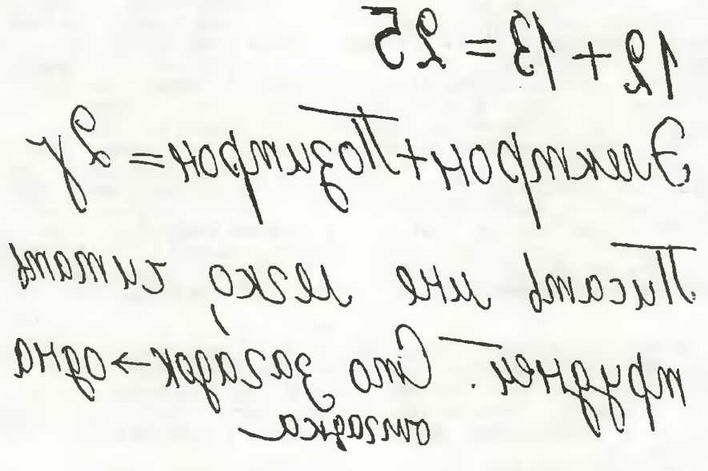 12 + 13 = 25
Электрон + Позитрон = 2γ
Писать мне легко, читать
трудней. Сто загадок → одна
отгадка